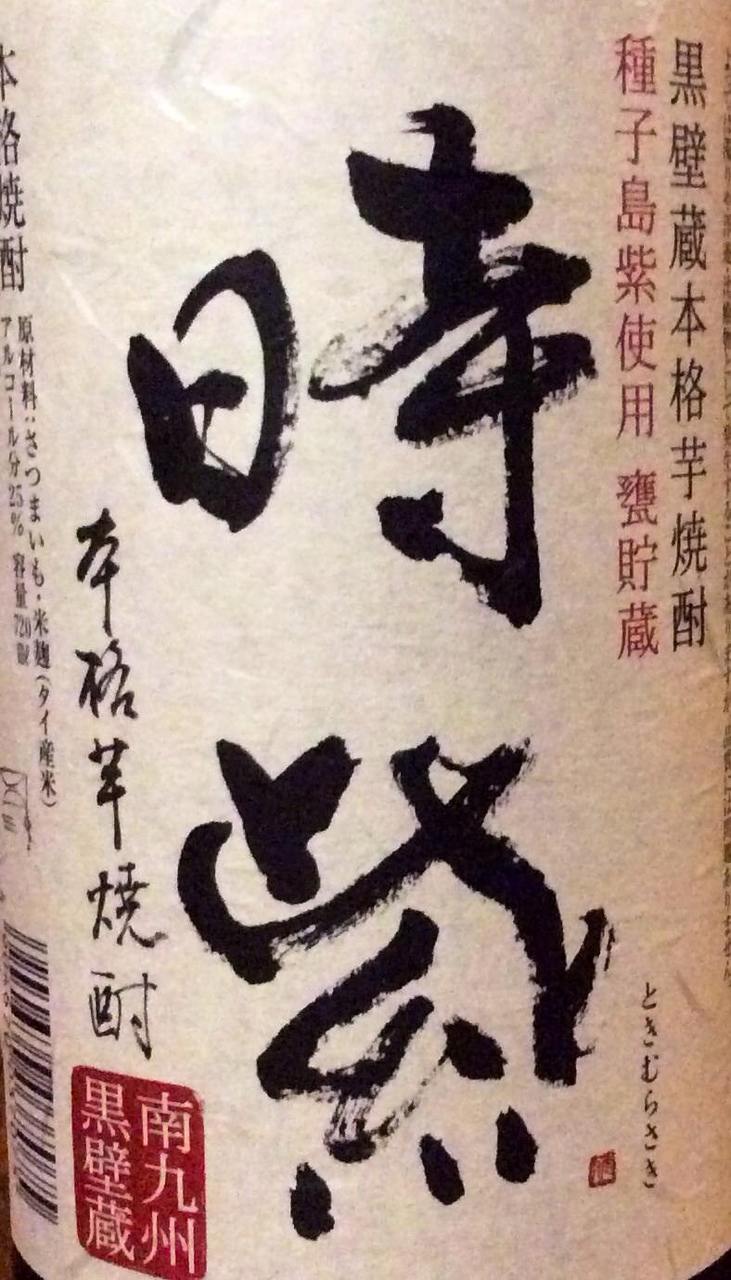 黒壁蔵本格芋焼酎
種子島紫使用 甕貯蔵
ときむらさき
時紫
本格芋焼酎
南九州
黒壁蔵
本格焼酎
原材料:さつまいも・米麹(タイ産米)
アルコール分25% 容量720ml